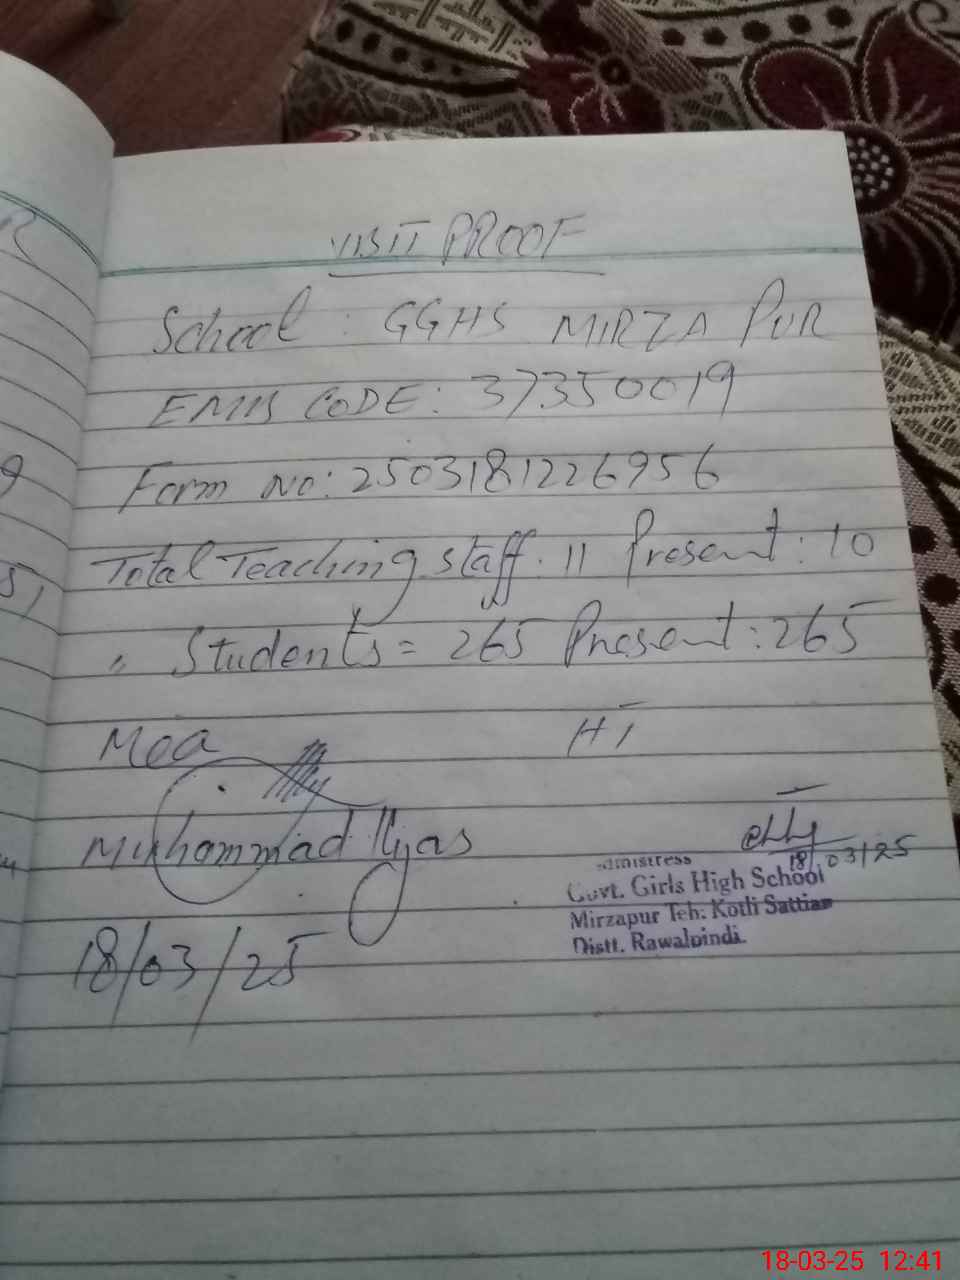 VISIT PROOF
School: GGHS MIRZA PUR
EMIS CODE: 37350019
Form no: 2503181226956
Total Teaching staff. 11 Present: 10
" Students = 265 Present: 265
Mea HT
Muhammad Ilyas
18/03/25
18/03/25
dmistress
Govt. Girls High School
Mirzapur Teh: Kotli Sattian
Distt. Rawalpindi.
18-03-25 12:41